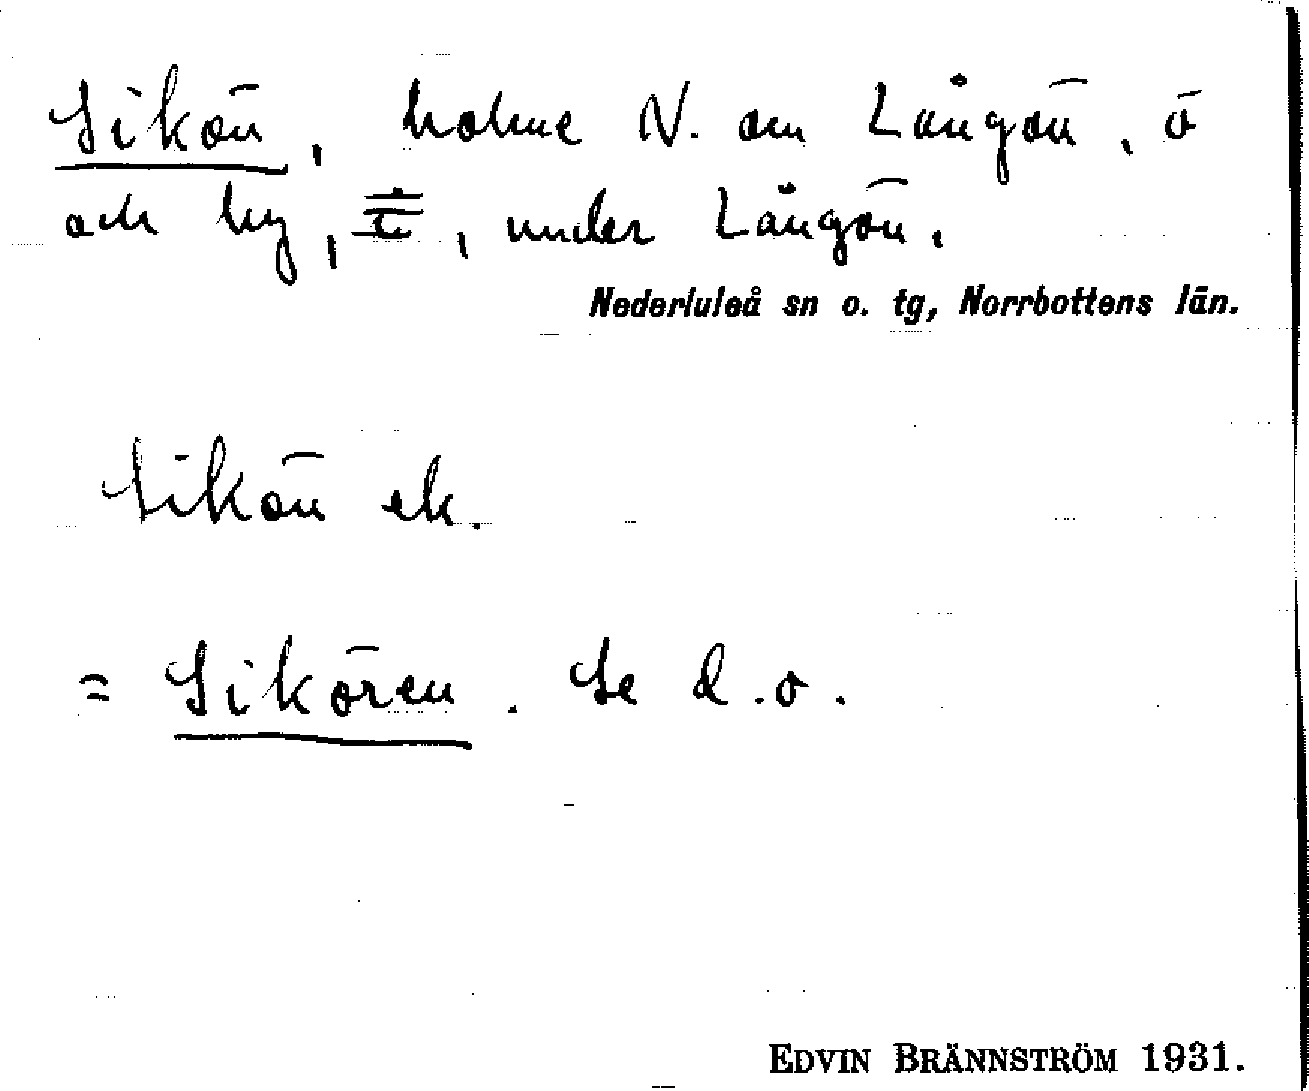 Sikön, holme N. om Långön, ö
och by, i, under Långön.
Nederluleå sn o. tg, Norrbottens län.
Sikön ek.
= Sikören. Se d.o.
EDVIN BRÄNNSTRÖM 1931.